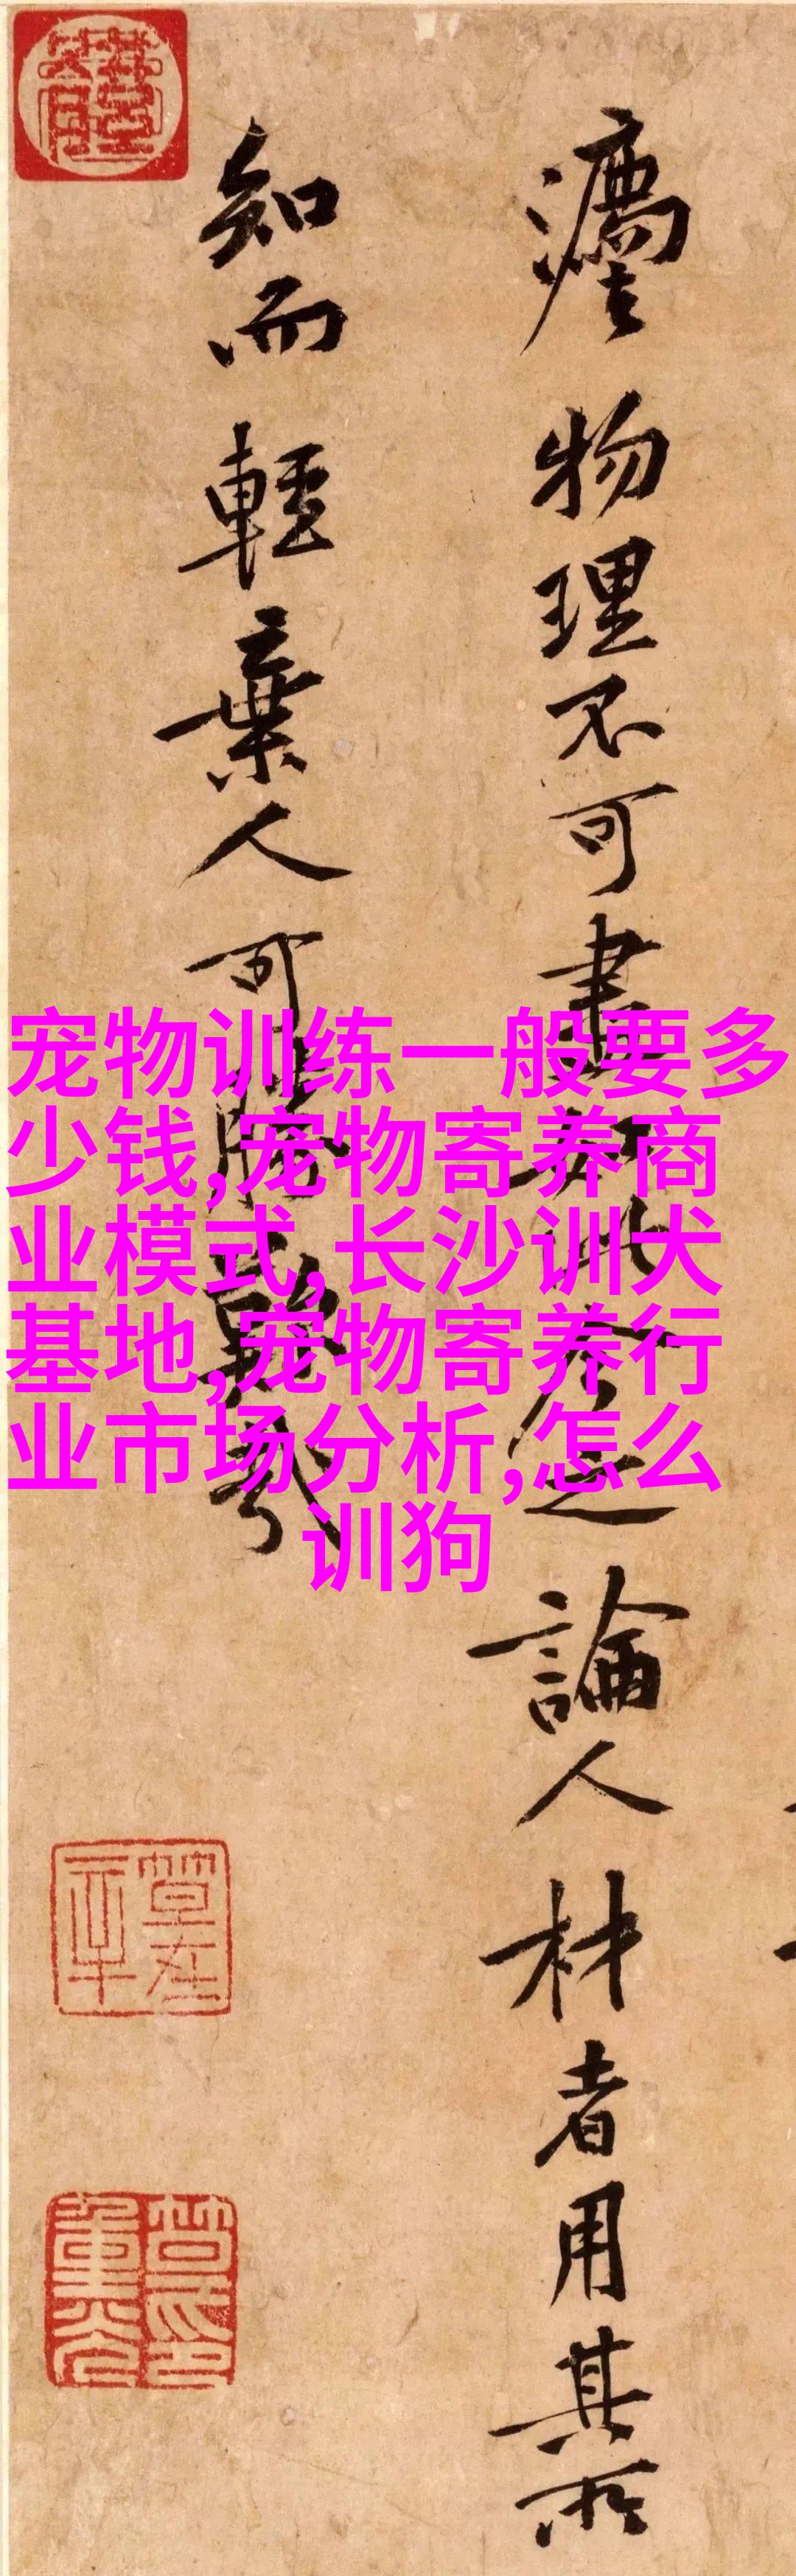 物理不可盡如此今之論人材者用其所
知而輕棄人可勝歎哉
宠物训练一般要多
少钱,宠物寄养商
业模式,长沙训犬
基地,宠物寄养行
业市场分析,怎么
训狗